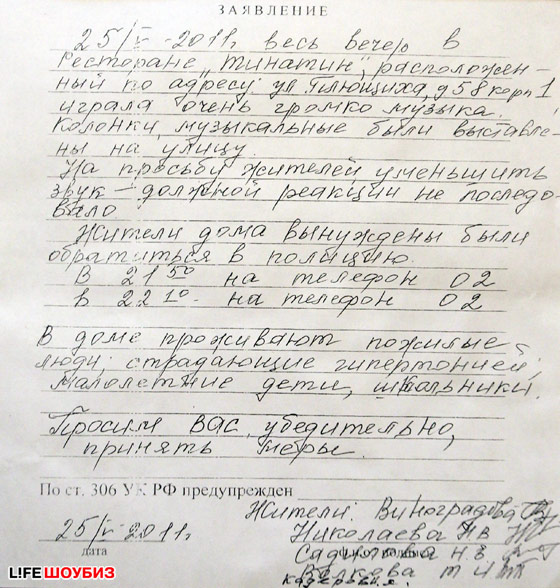 ЗАЯВЛЕНИЕ
25/V-2011г весь вечер в
Ресторане „Тинатин", расположен-
ный по адресу: ул Плющиха, д 58 корп 1
играла очень громко музыка.
Колонки музыкальные были выставле-
ны на улицу.
На просьбы жителей уменьшить
звук – должной реакции не последо-
вало
Жители дома вынуждены были
обратиться в полицию.
В 21 50 на телефон 02
в 22 10 на телефон 02
В доме проживают пожилые
люди, страдающие гипертонией,
малолетние дети, школьники.
Просим Вас, убедительно,
принять меры.
По ст. 306 УК РФ предупрежден
Жители: Виноградова
Николаева НВ
25/V-2011г.
дата
НЗ
Волкова Т И
LIFEШОУБИЗ